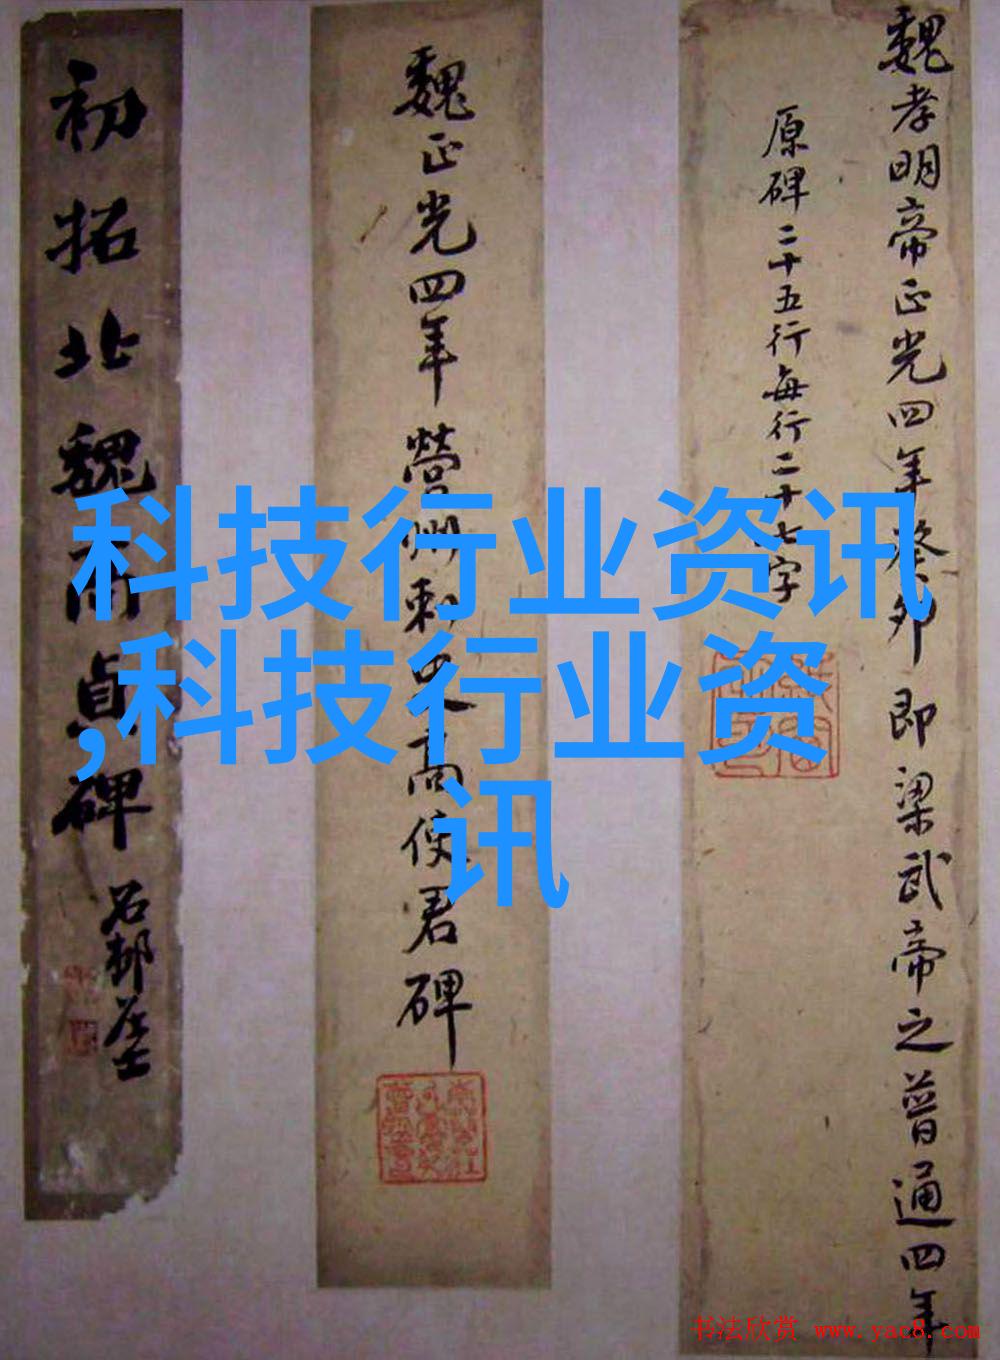 魏孝明帝正光四年癸卯即梁武帝之普通四年
原碑二十五行每行二十七字
魏正光四年營州刺史高使君碑
初拓北魏高貞碑
科技行业资讯
,科技行业资
讯
书法欣赏 www.yac8.com